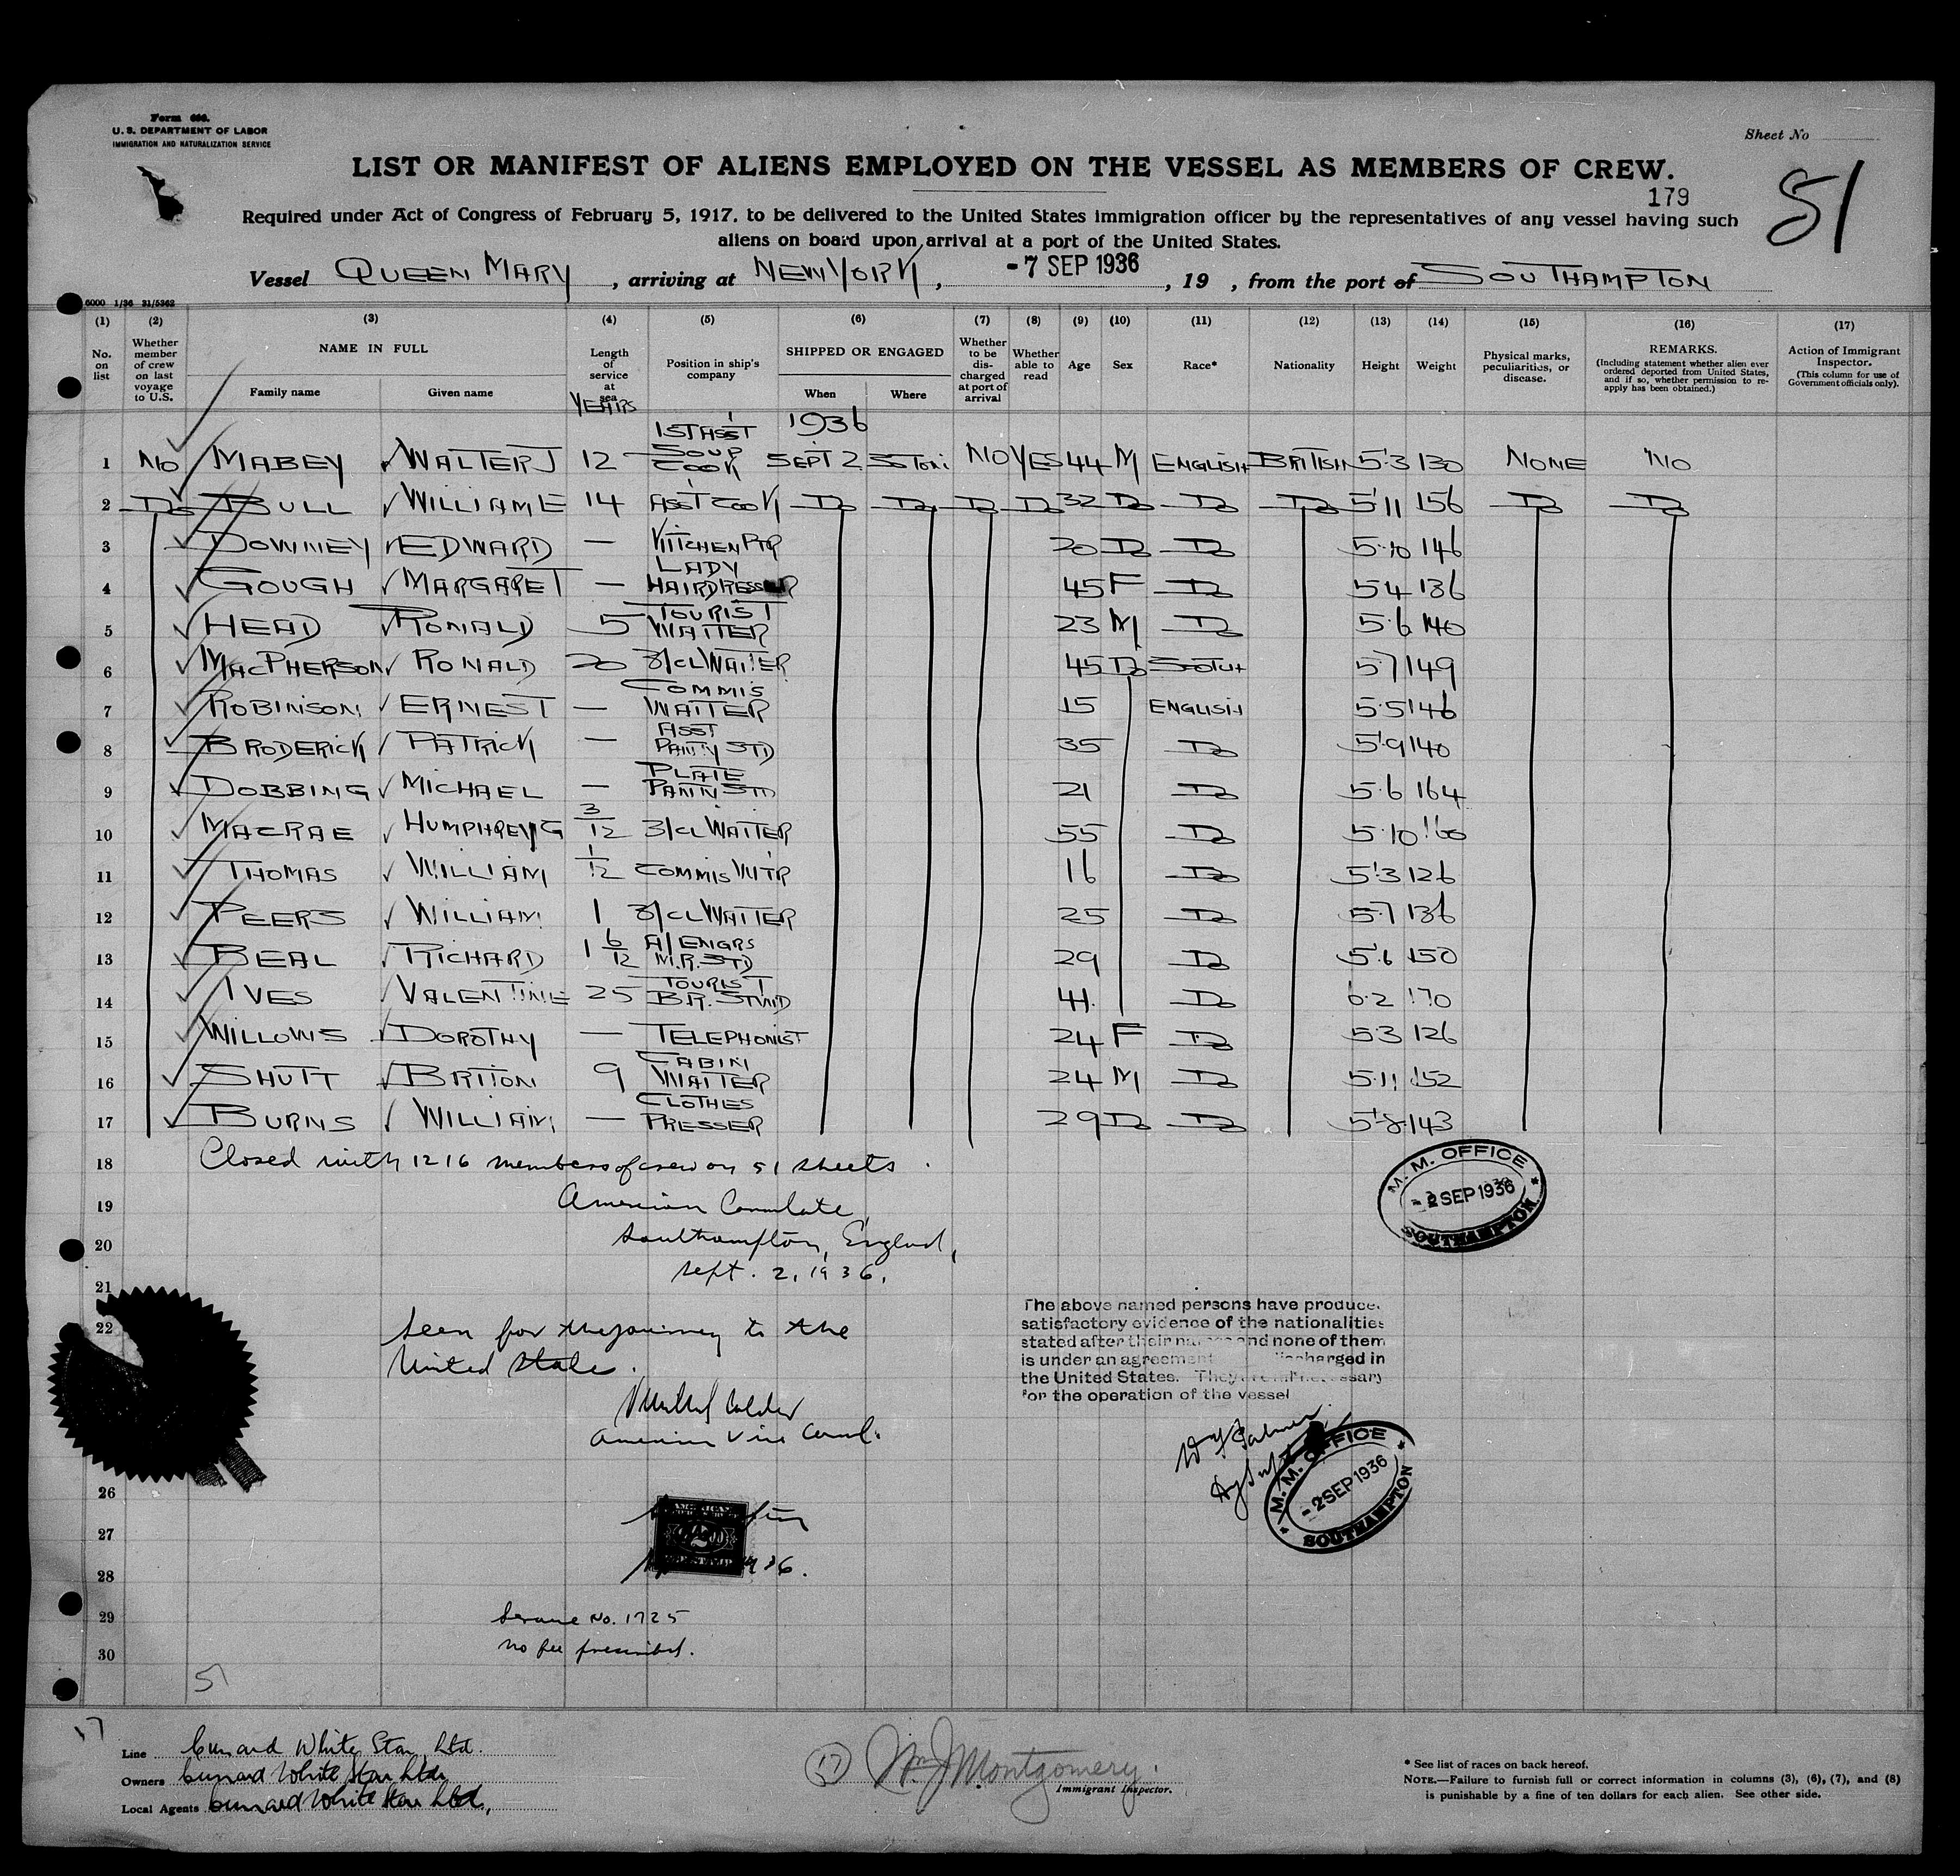 Form 680.
U. S. DEPARTMENT OF LABOR
IMMIGRATION AND NATURALIZATION SERVICE
Sheet No
LIST OR MANIFEST OF ALIENS EMPLOYED ON THE VESSEL AS MEMBERS OF CREW.
179
51
Required under Act of Congress of February 5, 1917, to be delivered to the United States immigration officer by the representatives of any vessel having such
aliens on board upon arrival at a port of the United States.
Vessel QUEEN MARY, arriving at NEW YORK, - 7 SEP 1936, 19 , from the port of SOUTHAMPTON
6000 1/36 31/5362
(1) (2) (3) (4) (5) (6) (7) (8) (9) (10) (11) (12) (13) (14) (15) (16) (17)
No. on list
Whether member of crew on last voyage to U.S.
NAME IN FULL
Family name Given name
Length of service at sea
YEARS
Position in ship's company
SHIPPED OR ENGAGED
When Where
Whether to be discharged at port of arrival
Whether able to read
Age Sex Race* Nationality Height Weight
Physical marks, peculiarities, or disease.
REMARKS.
(Including statement whether alien ever ordered deported from United States, and if so, whether permission to reapply has been obtained.)
Action of Immigrant Inspector.
(This column for use of Government officials only).
1936
1 NO MABEY WALTER J 12 1ST ASST SOUP COOK SEPT 2 S'TON NO YES 44 M ENGLISH BRITISH 5'3 130 NONE NO
2 Do BULL WILLIAM E 14 ASST COOK Do Do Do Do 32 Do Do Do 5'11 156 Do Do
3 DOWNEY EDWARD — KITCHEN PTR 20 Do Do 5.10 146
4 GOUGH MARGARET — LADY HAIRDRESSER 45 F Do 5 4 136
5 HEAD RONALD 5 TOURIST WAITER 23 M Do 5.6 140
6 MACPHERSON RONALD 20 3/CL WAITER 45 Do SCOTCH 5.7 149
7 ROBINSON ERNEST — COMMIS WAITER 15 ENGLISH 5.5 146
8 BRODERICK PATRICK — ASST PANTY STD 35 Do 5'9 140
9 DOBBING MICHAEL — PLATE PANTY STD 21 Do 5.6 164
10 MACRAE HUMPHREY G 3/12 3/CL WAITER 55 Do 5.10 160
11 THOMAS WILLIAM 1/12 COMMIS WTR 16 Do 5'3 126
12 PEERS WILLIAM 1 3/CL WAITER 25 Do 5.7 136
13 BEAL RICHARD 1 6/12 A/ENGRS M.R. STD 29 Do 5'6 150
14 IVES VALENTINE 25 TOURIST B.R. STWD 41. Do 6.2 170
15 WILLOWS DOROTHY — TELEPHONIST 24 F Do 5.3 126
16 SHUTT BRITON 9 CABIN WAITER 24 M Do 5.11 152
17 BURNS WILLIAM — CLOTHES PRESSER 29 Do Do 5'8 143
18 Closed with 1216 members of crew on 51 sheets.
19 American Consulate,
20 Southampton, England,
Sept. 2, 1936.
21
22 Seen for the journey to the
United States.
American Vice Consul.
M. M. OFFICE
- 2 SEP 1936
SOUTHAMPTON
The above named persons have produce
satisfactory evidence of the nationalities
stated after their names and none of them
is under an agreement discharged in
the United States. They are all necessary
for the operation of the vessel
M. M. OFFICE
- 2 SEP 1936
SOUTHAMPTON
26
27
28
29 Service No. 1725
30 no fee prescribed.
51
17
Line Cunard White Star Ltd.
Owners Cunard White Star Ltd.
Local Agents Cunard White Star Ltd.
17 Wm J Montgomery.
Immigrant Inspector.
* See list of races on back hereof.
NOTE.—Failure to furnish full or correct information in columns (3), (6), (7), and (8)
is punishable by a fine of ten dollars for each alien. See other side.